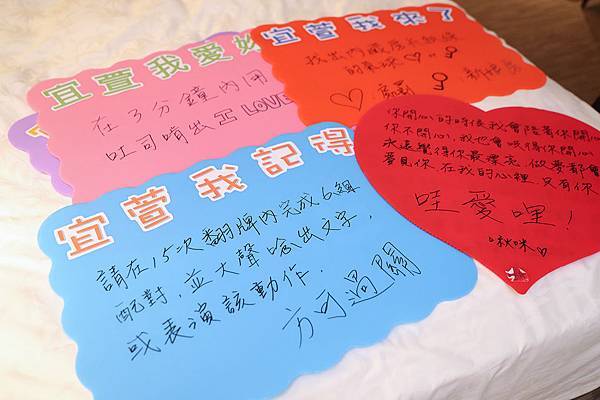 宜萱我愛妳
在3分鐘內用
吐司啃出 I LOVE
宜萱我來了
找出內藏房卡鈥匙
的氣球
宜萱我記得
請在15次翻牌內完成6組
配對，並大聲唸出文字，
或表演該動作，
方可過關
你開心的時候我會陪著你開心
你不開心，我也會哄得你開心
永遠覺得你最漂亮，做夢都會
夢見你，在我的心裡，只有你
哇愛哩！
啾咪♡